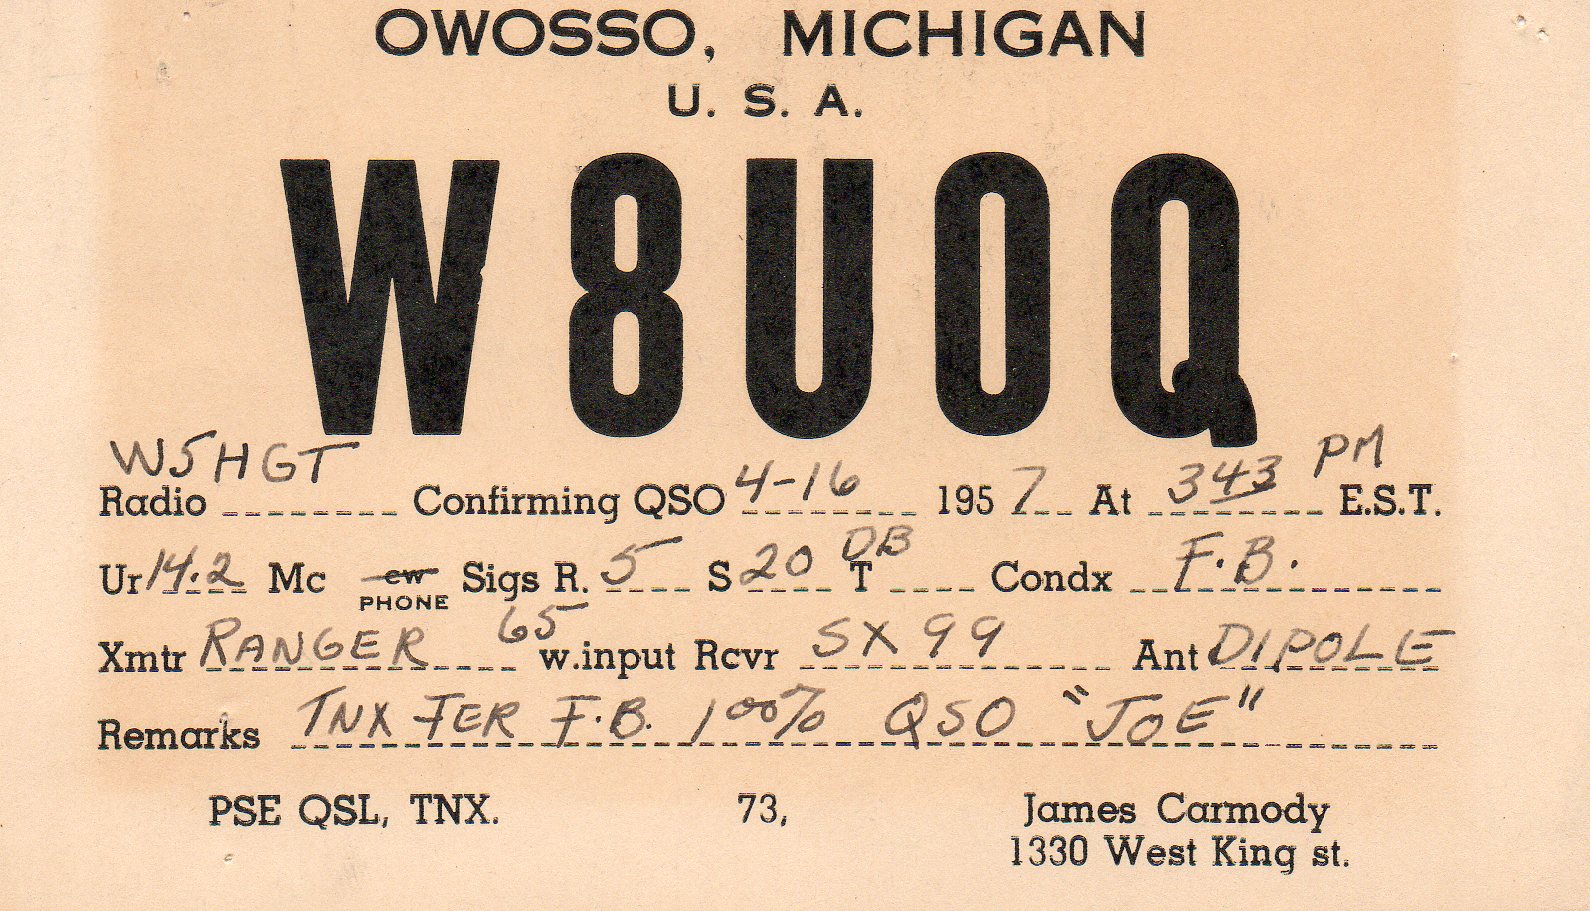 OWOSSO, MICHIGAN
U. S. A.
W8UOQ
Radio W5HGT Confirming QSO 4-16 1957 At 343 PM E.S.T.
Ur 14.2 Mc cw PHONE Sigs R. 5 S 20 DB T Condx F.B.
Xmtr RANGER 65 w.input Rcvr SX 99 Ant DIPOLE
Remarks TNX FER F.B. 100% QSO "JOE"
PSE QSL, TNX. 73, James Carmody
1330 West King st.